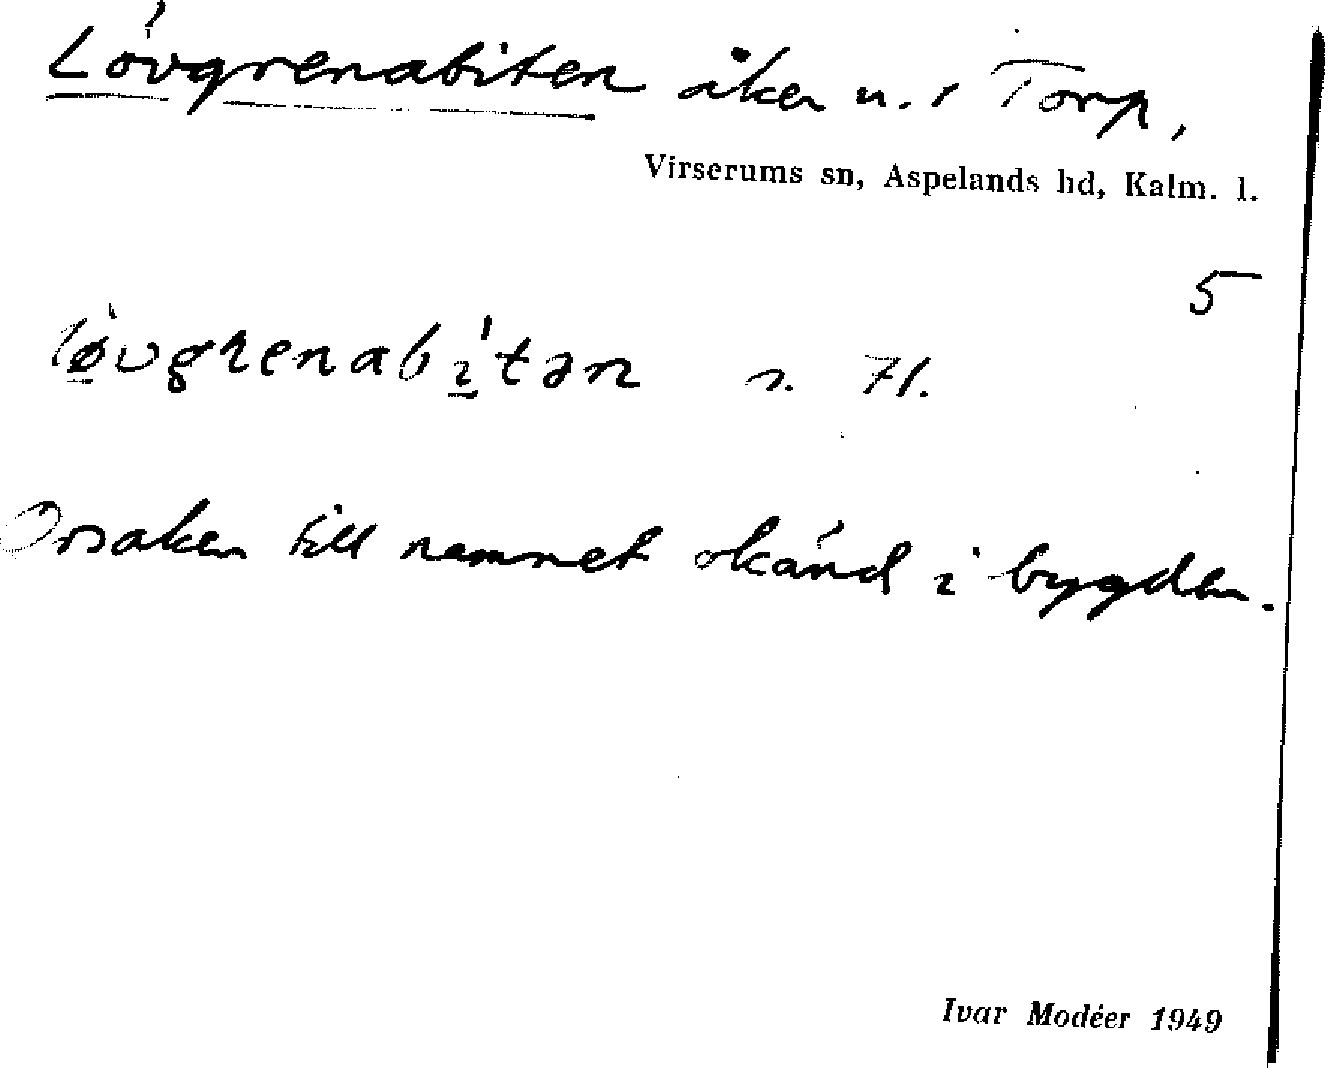 Lövgrenabiten åker n. i Torp,
Virserums sn, Aspelands hd, Kalm. l.
5
løvgrenabitən n. 71.
Orsaken till namnet okänd i bygden.
Ivar Modéer 1949